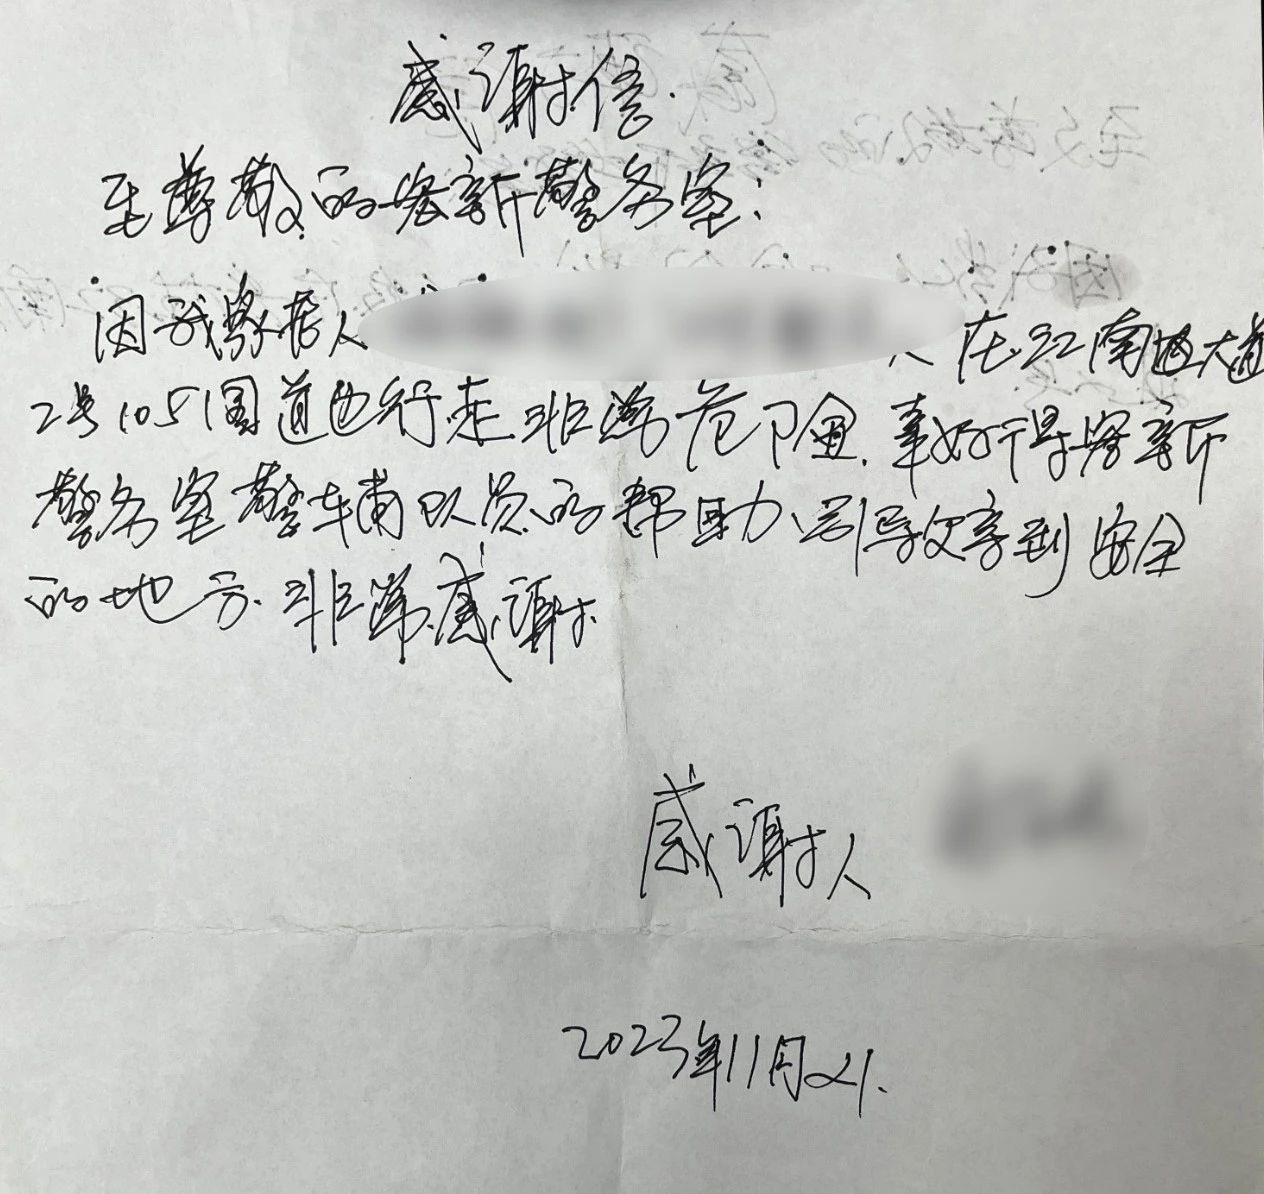 感谢信.
至尊敬的客新警务室:
因我家老人 人在江南大道
2号105国道边行走非常危险.幸好得客新
警务室警辅队员的帮助、引导父亲到安全
的地方.非常感谢.
感谢人
2023年11月21.